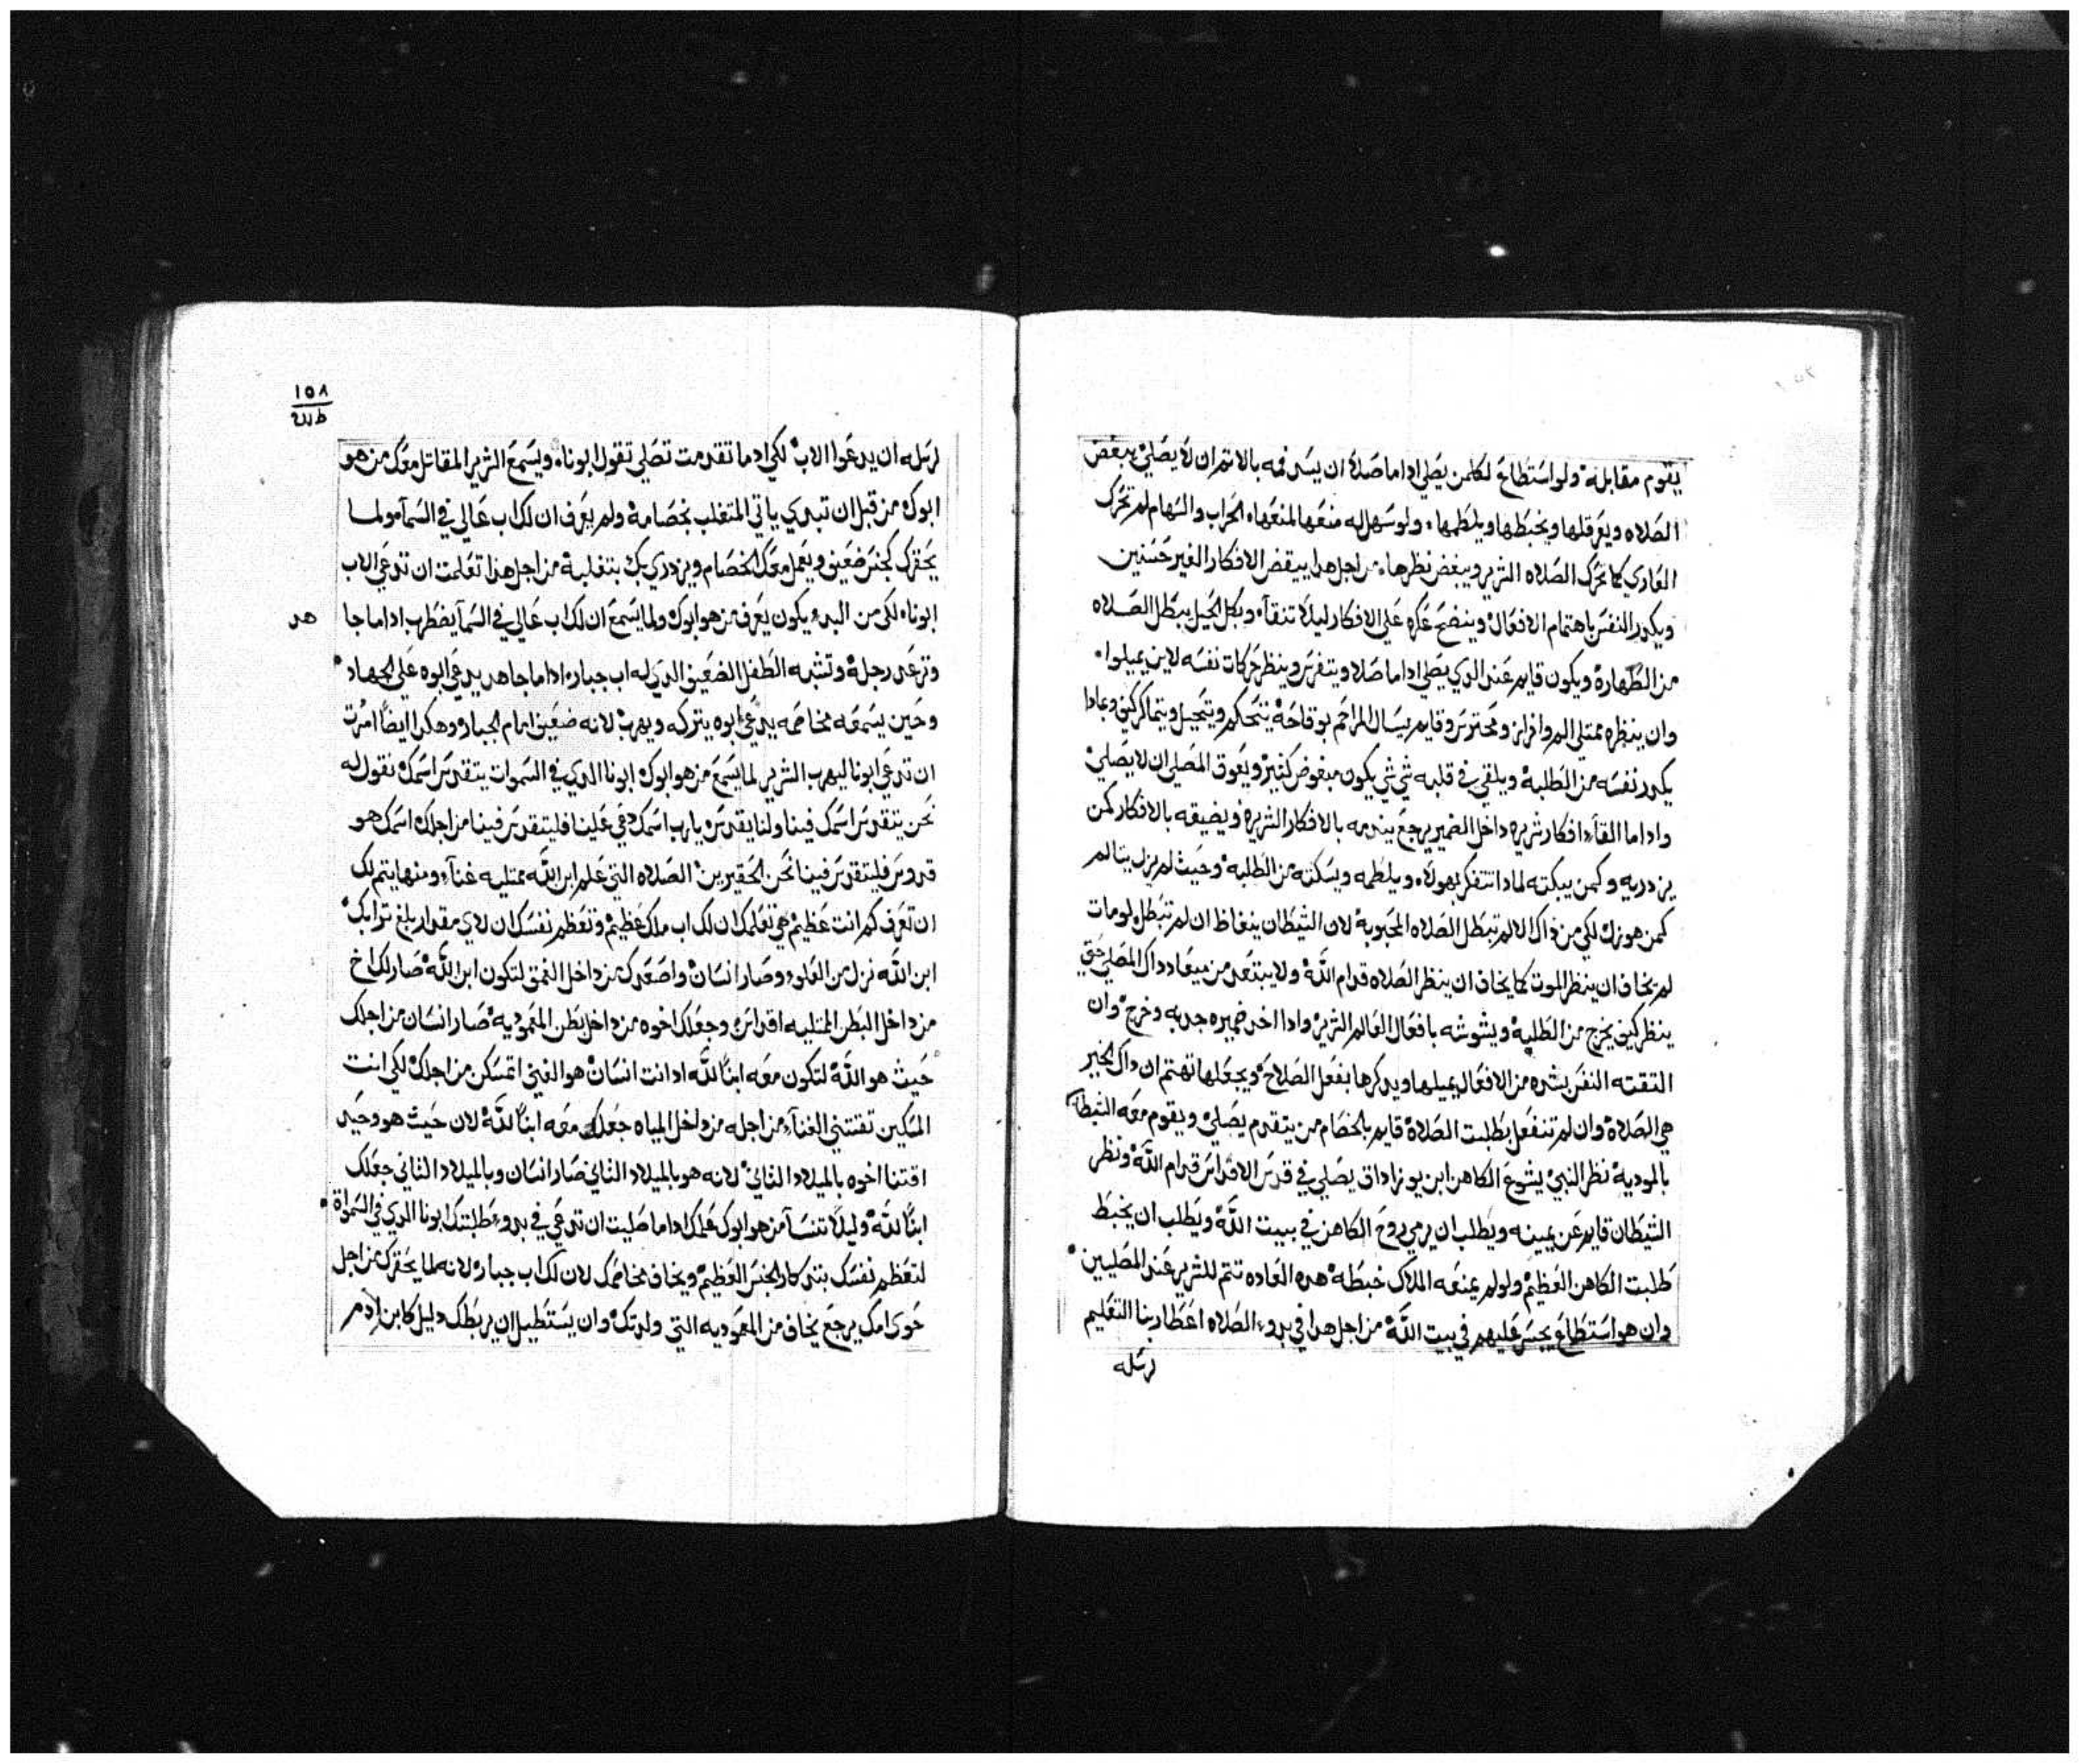 يقوم مقابلة ولو استطاع لكلمن يصلي اداما صلا ان يسد فمه بالاتمران لا يصلي يبغض
الصلاه ويعرقلها ويخبطها ويلطمها، ولو سهل له منعها لمنعها، الحراب والسهام لم تحرك
العادي كما تحرك الصلاه الشرير ويبغض نظرها، من اجل هدا يبقض الافكار الغير حسنين
ويكدر النفس باهتمام الافعال وينضح عكره علي الافكار ليلا تنقآ، وبكل الحيل يبطل الصلاه
من الطهارة ويكون قايم عند الدي يصلي اداما صلا ويتفرس وينظر حركات نفسه لاين يميلوا،
وان ينظره ممتلي الم وافراز ومحترس وقايم يسال المراحم بوقاحة يتحكم ويتحيل ويتماكر كيف وبمادا
يكدر نفسه من الطلبة ويلقي في قلبه شي شي يكون مبغوض كتير ويعوق المصلي ان لا يصلي
واداما القاء افكار شريره داخل الضمير يرجع يندمه بالافكار الشريرة ويضيقه بالافكار كمن
يزدريه وكمن يبكته لمادا تتفكر بهولاء ويلطمه ويسكته من الطلبة وحيث لم يزل يتالم
كمن هو نزل لكي من داك الالم تبطل الصلاه المحبوبة لان الشيطان ينغاظ ان لم تبطل ولو مات
لم يخاف ان ينظر الموت كما يخاف ان ينظر الصلاه قدام الله ولا يبتعد من ميعاد داك المصلي حتي
ينظر كيف يخرج من الطلبة ويشوشه بافعال العالم الشرير وادا اخد ضميره جدبه وخرج وان
التقته النفس بشره من الافعال يميلها ويدكرها بفعل الصلاح ويجعلها تهتم ان داك الخير
هي الصلاة وان لم تنفعل بطلبت الصلاة قايم بالخصام من يتقدم يصلي ويقوم معه الشيطان
بالموديه نظر النبي يشوع الكاهن ابن يوزاداق يصلي في قدس الاقداس قدام الله ونظر
الشيطان قايم عن يمينه ويطلب ان يرمي روح الكاهن في بيت الله ويطلب ان يخبط
طلبت الكاهن العظيم ولو لم يمنعه الملاك خبطه هده العاده تتم للشرير عند المصليين
وان هو استطاع يجسر عليهم في بيت الله من اجل هدا في بدو الصلاه اعطا ربنا التعليم
لرسله
١٥٨
لرسله ان يدعوا الاب لكي ادما تقدمت تصلي تقول ابونا، ويسمع الشرير المقاتل معك من هو
ابوك من قبل ان تبدي ياتي المتغلب بخصامة ولم يعرف ان لك اب عالي في السمآء ولما
يحقرك كجنس ضعيف ويعمل معك الخصام ويزدري بك بتغلبة من اجل هدا تعلمت ان تدعي الاب
ابونا، لكي من البدء يكون يعرف من هو ابوك ولما يسمع ان لك اب عالي في السمآ يضطرب اداما جا
هد
وترعد رجلة وتشبه الطفل الضعيف الدي له اب جبار، اداما جاهد يدعي ابوه علي الجهاد
وحين يسمعه مخاصمه يدعي ابوه يتركه ويهرب لانه ضعيف امام الجبار وهكدا ايضا امرت
ان تدعي ابونا ليهرب الشرير لما يسمع من هو ابوك ابونا الدي في السموات يتقدس اسمك نقول له
نحن يتقدس اسمك فينا ولنا يقدس يارب اسمك دعي علينا فليتقدس فينا من اجلك اسمك هو
قدوس فليتقدس فينا نحن الحقيرين الصلاه التي علم ابن الله ممتليه غنآء ومنها يتم لك
ان تعرف كم انت عظيم هي تعلمك ان لك اب ملك عظيم وتعظم نفسك ان لاي مقدار بلغ ترابك
ابن الله نزل من العلو وصار انسان واصعدك من داخل العمق لتكون ابن الله صار لك اخ
من داخل البطن الممتليه اقداس وجعلك اخوه من داخل بطن المعموديه صار انسان من اجلك
حيث هو الله لتكون معه ابنا لله اد انت انسان هو الغني اتمسكن من اجلك لكي انت
المسكين تقتني الغنآء من اجله من داخل المياه جعلك معه ابنا لله لان حيث هو وحيد
اقتنا اخوه بالميلاد الثاني لانه هو بالميلاد الثاني صار انسان وبالميلاد الثاني جعلك
ابنا لله وليلا تنسا من هو ابوك علمك اداما صليت ان تدعي في بدو طلبتك ابونا الدي في السمواة
لتعظم نفسك بتدكار الجنس العظيم ويخاف مخاصمك لان لك اب جبار لانه لما يحقرك من اجل
حوي امك يرجع يخاف من المعموديه التي ولدتك وان يستطيل ان يربطك دليل كابن ادم